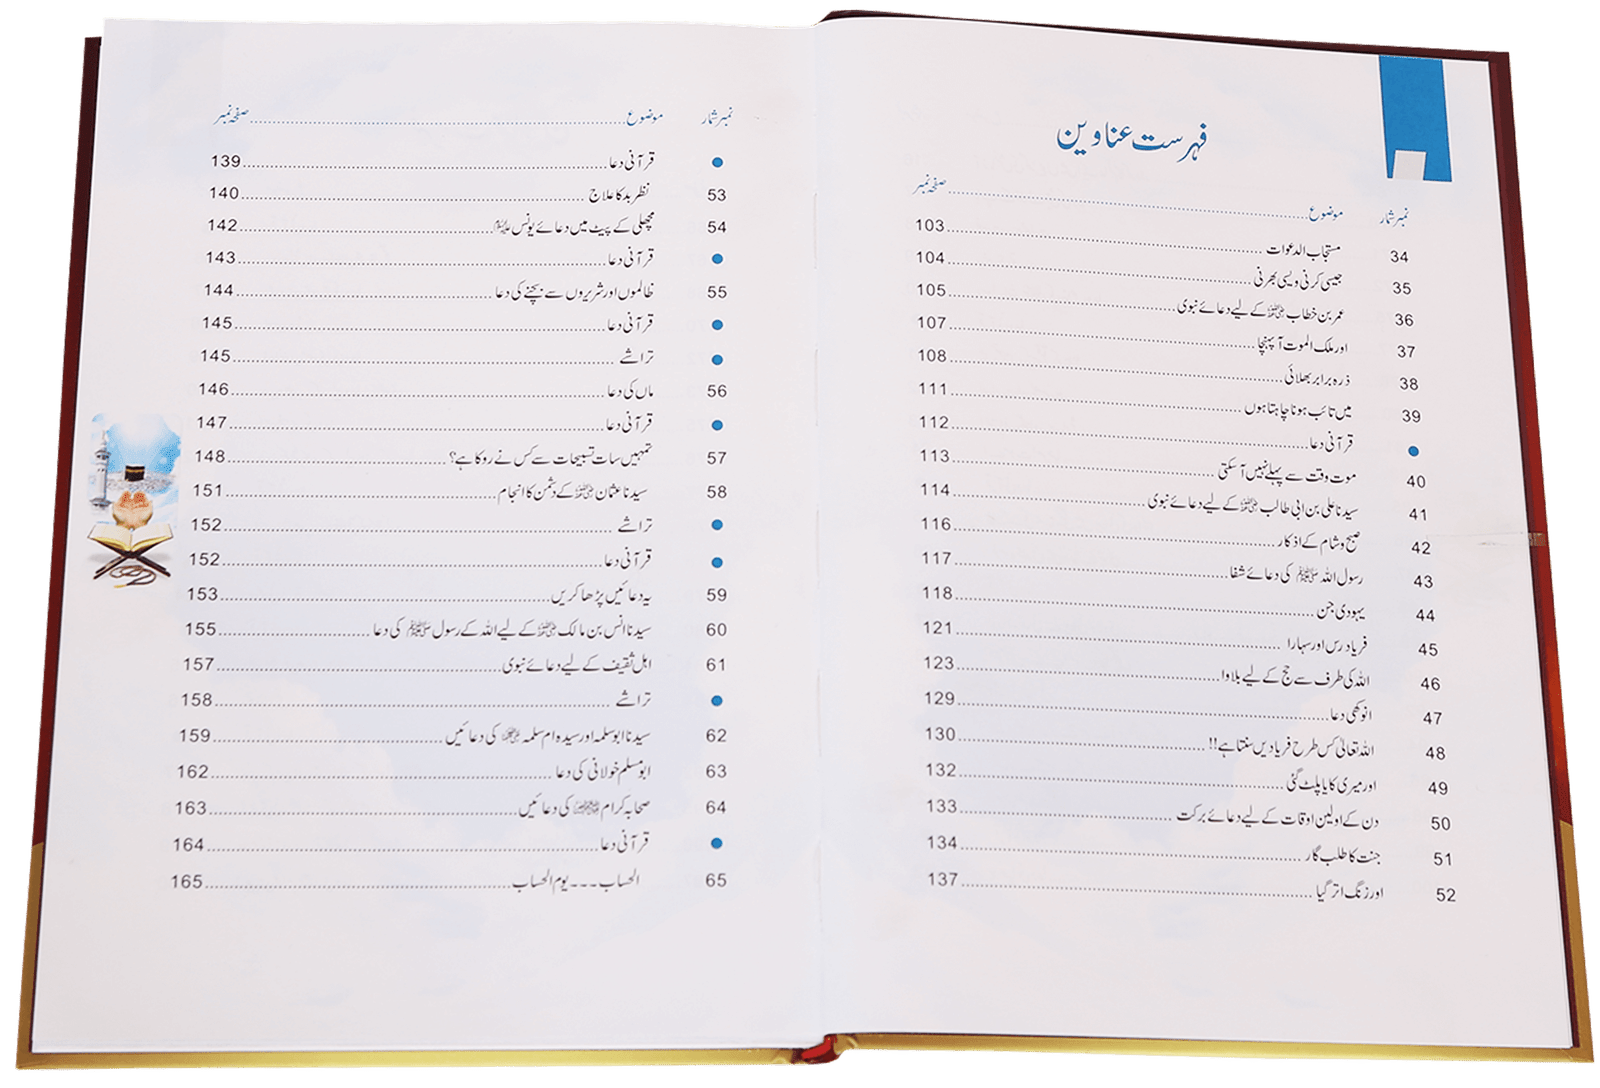 فہرست عناوین
نمبر شمار موضوع ........ صفحہ نمبر
34 مستجاب الدعوات ........ 103
35 جیسی کرنی ویسی بھرنی ........ 104
36 عمر بن خطاب رضی اللہ عنہ کے لیے دعائے نبوی ........ 105
37 اور ملک الموت آ پہنچا ........ 107
38 ذرہ برابر بھلائی ........ 108
39 میں تائب ہونا چاہتا ہوں ........ 111
● قرآنی دعا ........ 112
40 موت وقت سے پہلے نہیں آ سکتی ........ 113
41 سیدنا علی بن ابی طالب رضی اللہ عنہ کے لیے دعائے نبوی ........ 114
42 صبح و شام کے اذکار ........ 116
43 رسول اللہ ﷺ کی دعائے شفا ........ 117
44 یہودی جن ........ 118
45 فریاد رس اور سہارا ........ 121
46 اللہ کی طرف سے حج کے لیے بلاوا ........ 123
47 انوکھی دعا ........ 129
48 اللہ تعالیٰ کس طرح فریادیں سنتا ہے!! ........ 130
49 اور میری کایا پلٹ گئی ........ 132
50 دن کے اولین اوقات کے لیے دعائے برکت ........ 133
51 جنت کا طلب گار ........ 134
52 اور زنگ اتر گیا ........ 137
نمبر شمار موضوع ........ صفحہ نمبر
● قرآنی دعا ........ 139
53 نظر بد کا علاج ........ 140
54 مچھلی کے پیٹ میں دعائے یونس علیہ السلام ........ 142
● قرآنی دعا ........ 143
55 ظالموں اور شریروں سے بچنے کی دعا ........ 144
● قرآنی دعا ........ 145
● تراشے ........ 145
56 ماں کی دعا ........ 146
● قرآنی دعا ........ 147
57 تمہیں سات تسبیحات سے کس نے روکا ہے؟ ........ 148
58 سیدنا عثمان رضی اللہ عنہ کے دشمن کا انجام ........ 151
● تراشے ........ 152
● قرآنی دعا ........ 152
59 یہ دعائیں پڑھا کریں ........ 153
60 سیدنا انس بن مالک رضی اللہ عنہ کے لیے اللہ کے رسول ﷺ کی دعا ........ 155
61 اہل ثقیف کے لیے دعائے نبوی ........ 157
● تراشے ........ 158
62 سیدنا ابو سلمہ اور سیدہ ام سلمہ رضی اللہ عنہما کی دعائیں ........ 159
63 ابو مسلم خولانی کی دعا ........ 162
64 صحابہ کرام رضی اللہ عنہم کی دعائیں ........ 163
● قرآنی دعا ........ 164
65 الحساب ۔۔۔ یوم الحساب ........ 165